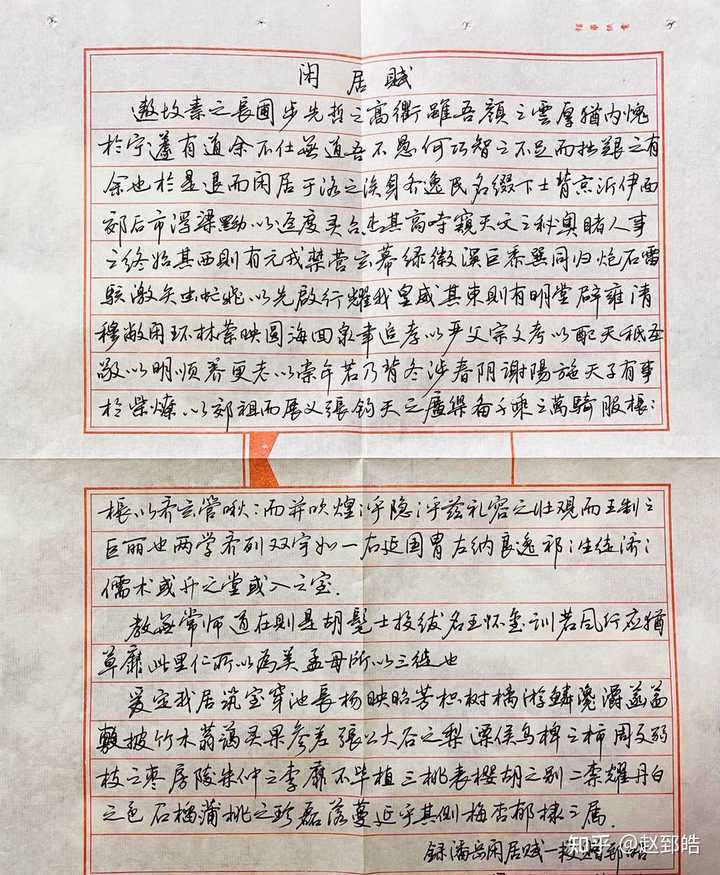 闲居赋
遨坟素之长圃步先哲之高衢虽吾颜之云厚犹内愧
于宁蘧有道余不仕无道吾不愚何巧智之不足而拙艰之有
余也于是退而闲居于洛之涘身齐逸民名缀下士背京泝伊面
郊后市浮梁黝以迳度灵台杰其高峙窥天文之秘奥睹人事
之终始其西则有元戎禁营玄幕绿徽溪巨黍异同归炮石雷
骇激矢虻飞以先启行耀我皇威其东则有明堂辟雍清
穆敞闲环林萦映圆海回泉聿追孝以严父宗文考以配天秪圣
敬以明顺养更老以崇年若乃背冬涉春阴谢阳施天子有事
于柴燎以郊祖而展义张钧天之广乐备千乘之万骑服枨:
枨以齐玄管啾:而并吹煌:乎隐:乎兹礼容之壮观而王制之
巨丽也两学齐列双宇如一右延国胄左纳良逸祁:生徒济:
儒术或升之堂或入之室.
教无常师道在则是胡髦士投绂名王怀玺训若风行应犹
草靡此里仁所以为美孟母所以三徙也
爰定我居筑室穿池长杨映沼芳枳树橘游鳞瀺灂菡萏
敷披竹木蓊蔼灵果参差张公大谷之梨溧侯乌椑之柿周文弱
枝之枣房陵朱仲之李靡不毕植三桃表樱胡之别二柰耀丹白
之色石榴蒲桃之珍磊落蔓延乎其侧梅杏郁棣之属.
录潘岳闲居赋一段赵郅皓
知乎 @赵郅皓